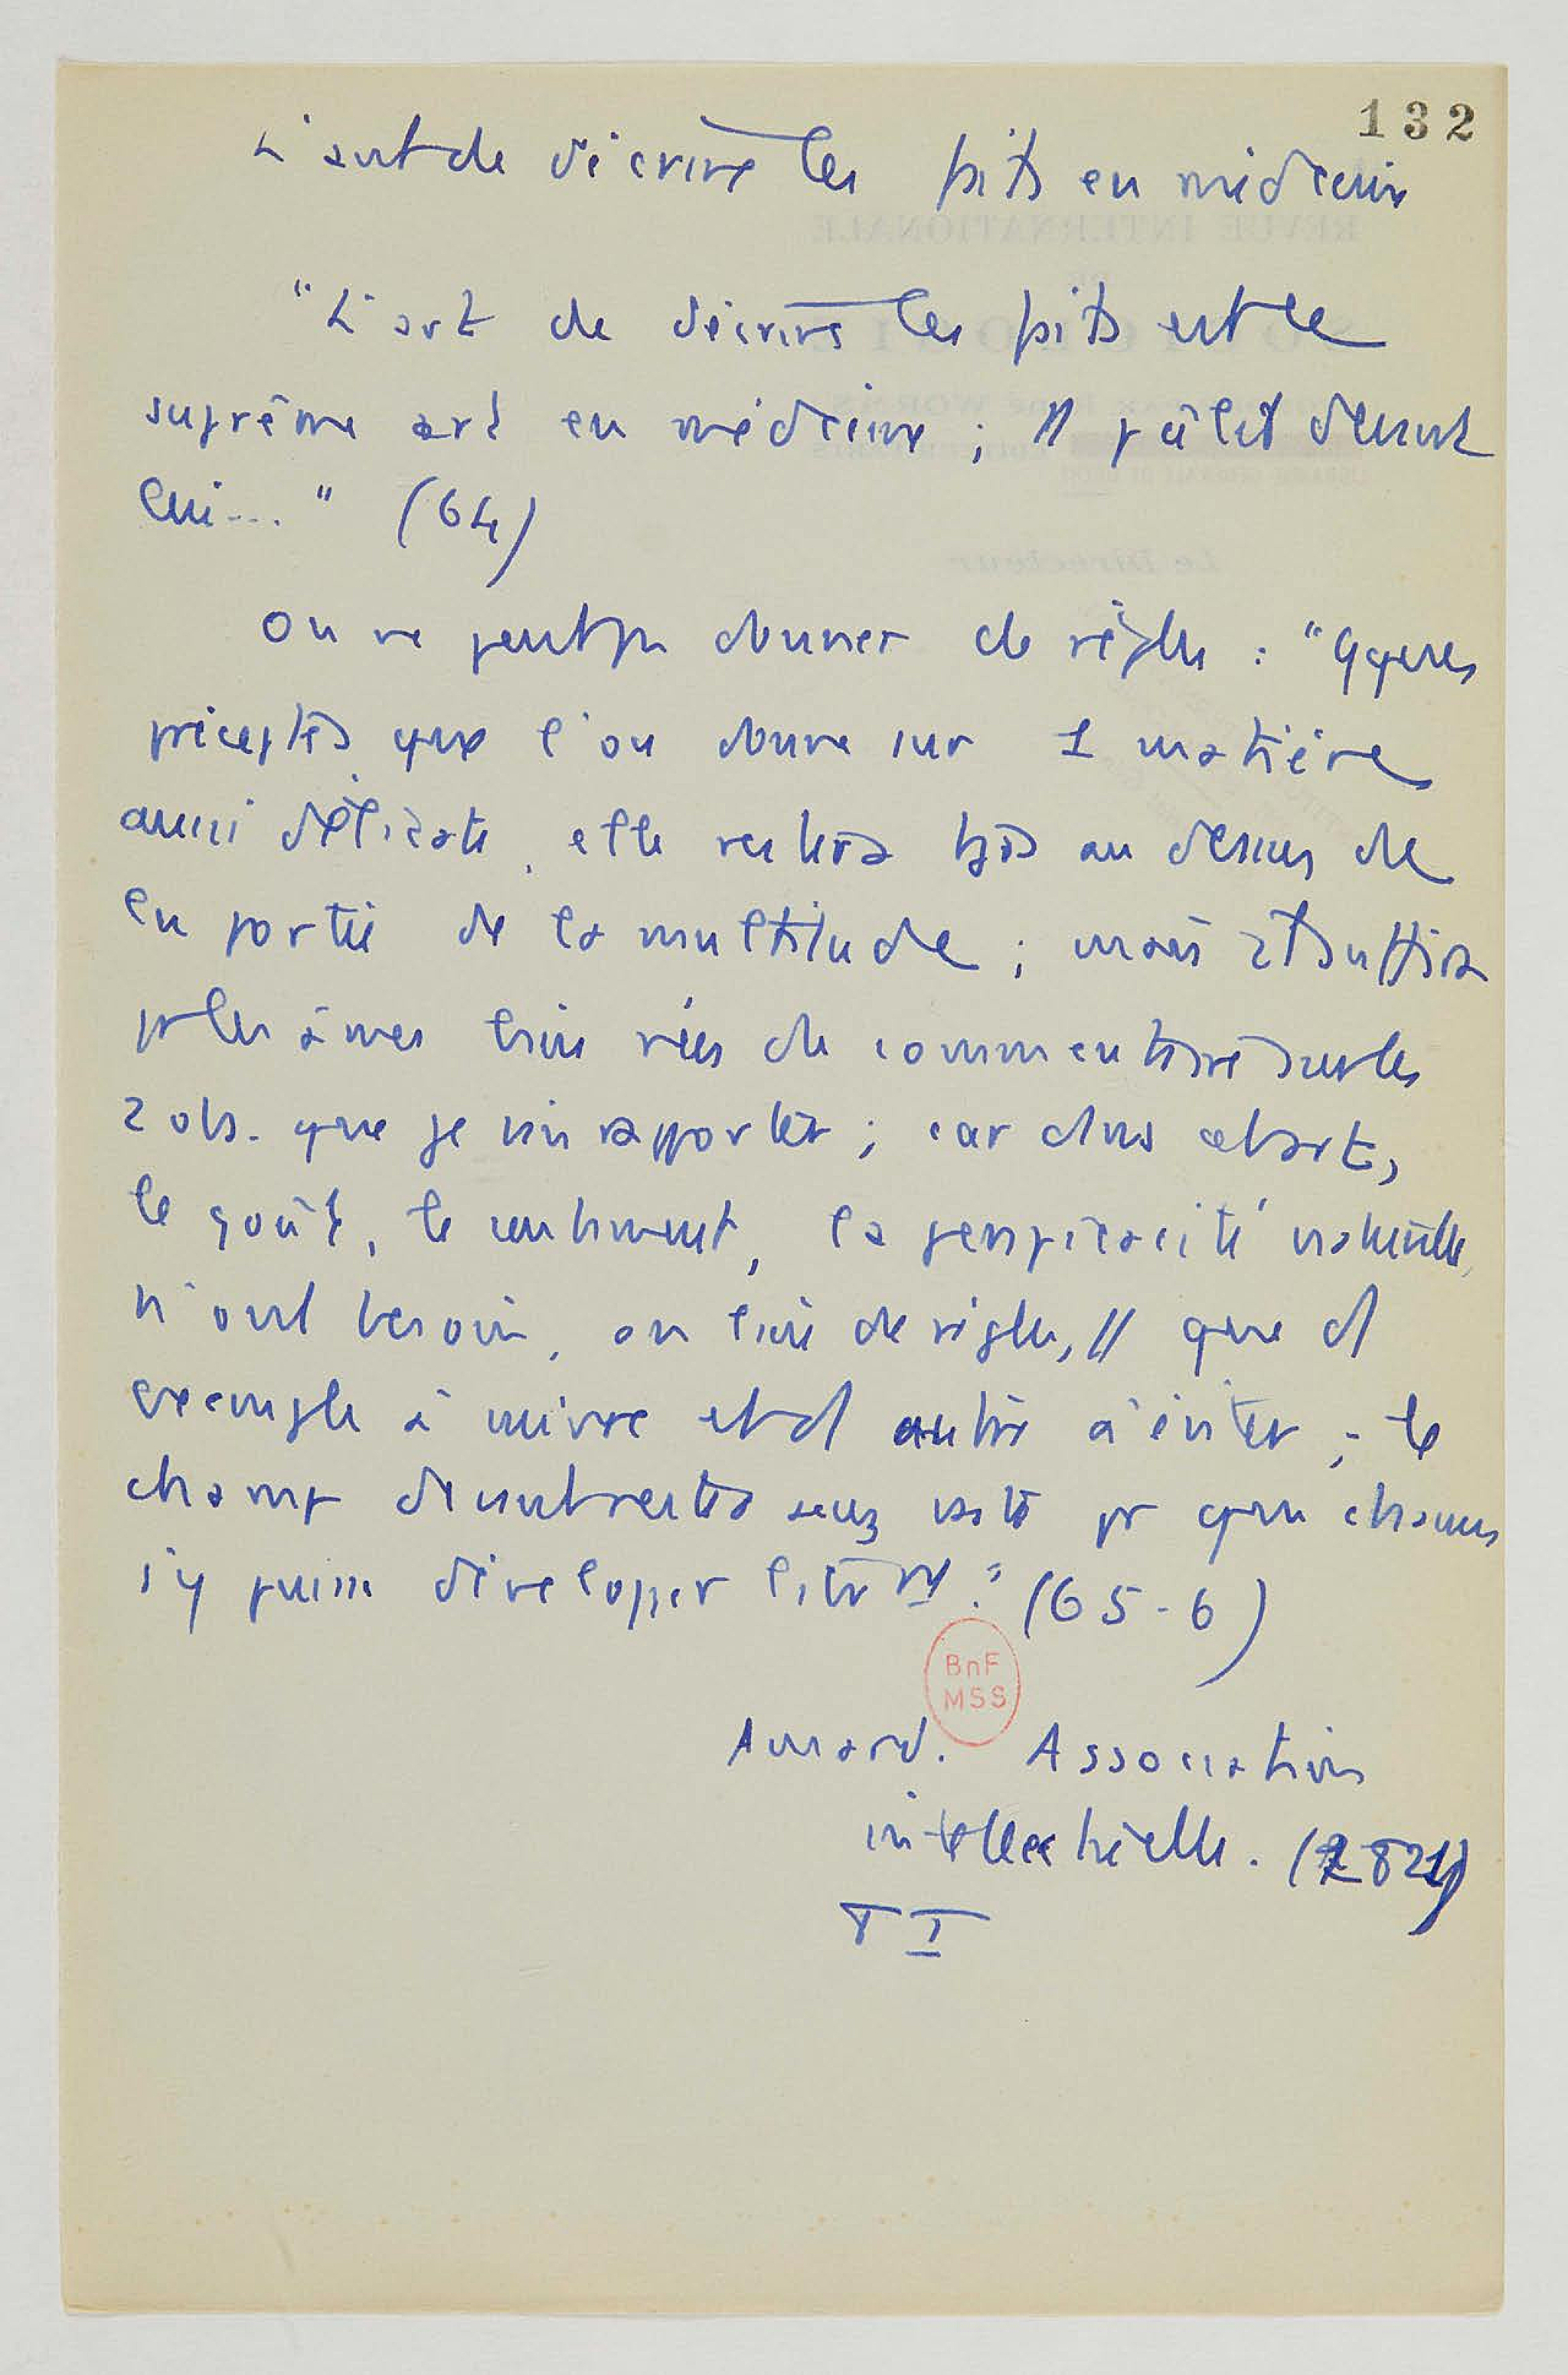 132
L'art de décrire les faits en médecine
"L'art de décrire les faits est le
suprême art en médecine ; // pâlit devant
lui... " (64)
On ne peut pas donner de règles : "Qques
préceptes que l'on donne sur 1 matière
aussi délicate, elle restera tjs au dessus de
la portée de la multitude ; mais il suffira
pr les âmes bien nées de commentaires sur les
2 obs. que je vais rapporter ; car dans cet art,
le goût, le sentiment, la perspicacité naturelle
n'ont besoin, au lieu de règles, // que d
exemple à suivre et d autre à éviter ; le
champ devant rester assez vaste pr que chacun
s'y puisse développer
" (65-6)
BnF
MSS
Amard. Association
intellectuelle. (1821)
T I